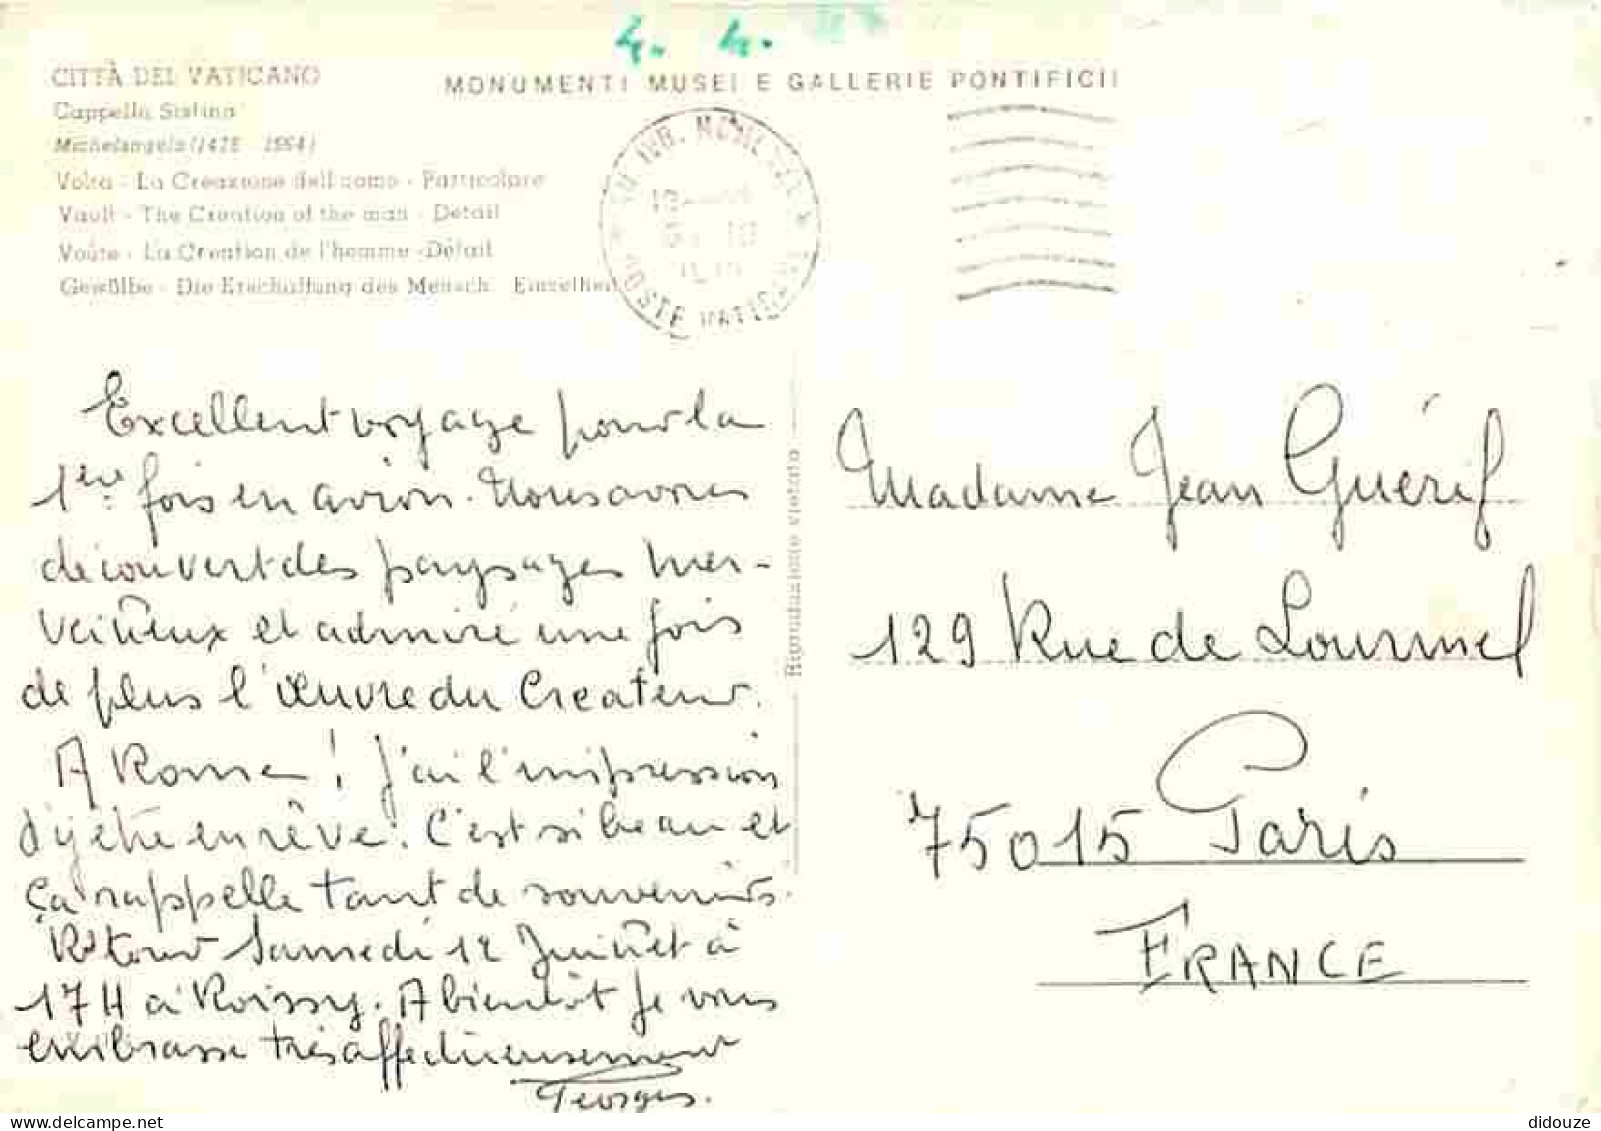 CITTÀ DEL VATICANO
Cappella Sistina
Michelangelo (1475 - 1564)
Volta - La Creazione dell'uomo - Particolare
Vault - The Creation of the man - Detail
Voûte - La Création de l'homme - Détail
Gewölbe - Die Erschaffung des Mensch - Einzelheit
MONUMENTI MUSEI E GALLERIE PONTIFICII
POSTE VATICANE
Excellent voyage pour la
1ère fois en avion. Nous avons
découvert des paysages mer-
veilleux et admiré une fois
de plus l'œuvre du Créateur.
A Rome ! J'ai l'impression
d'y être en rêve. C'est si beau et
ça rappelle tant de souvenirs.
Retour Samedi 12 Juillet à
17H à Roissy. A bientôt je vous
embrasse très affectueusement
Georges.
Riproduzione vietata
Madame Jean Guérif
129 Rue de Lourmel
75015 Paris
FRANCE
didouze